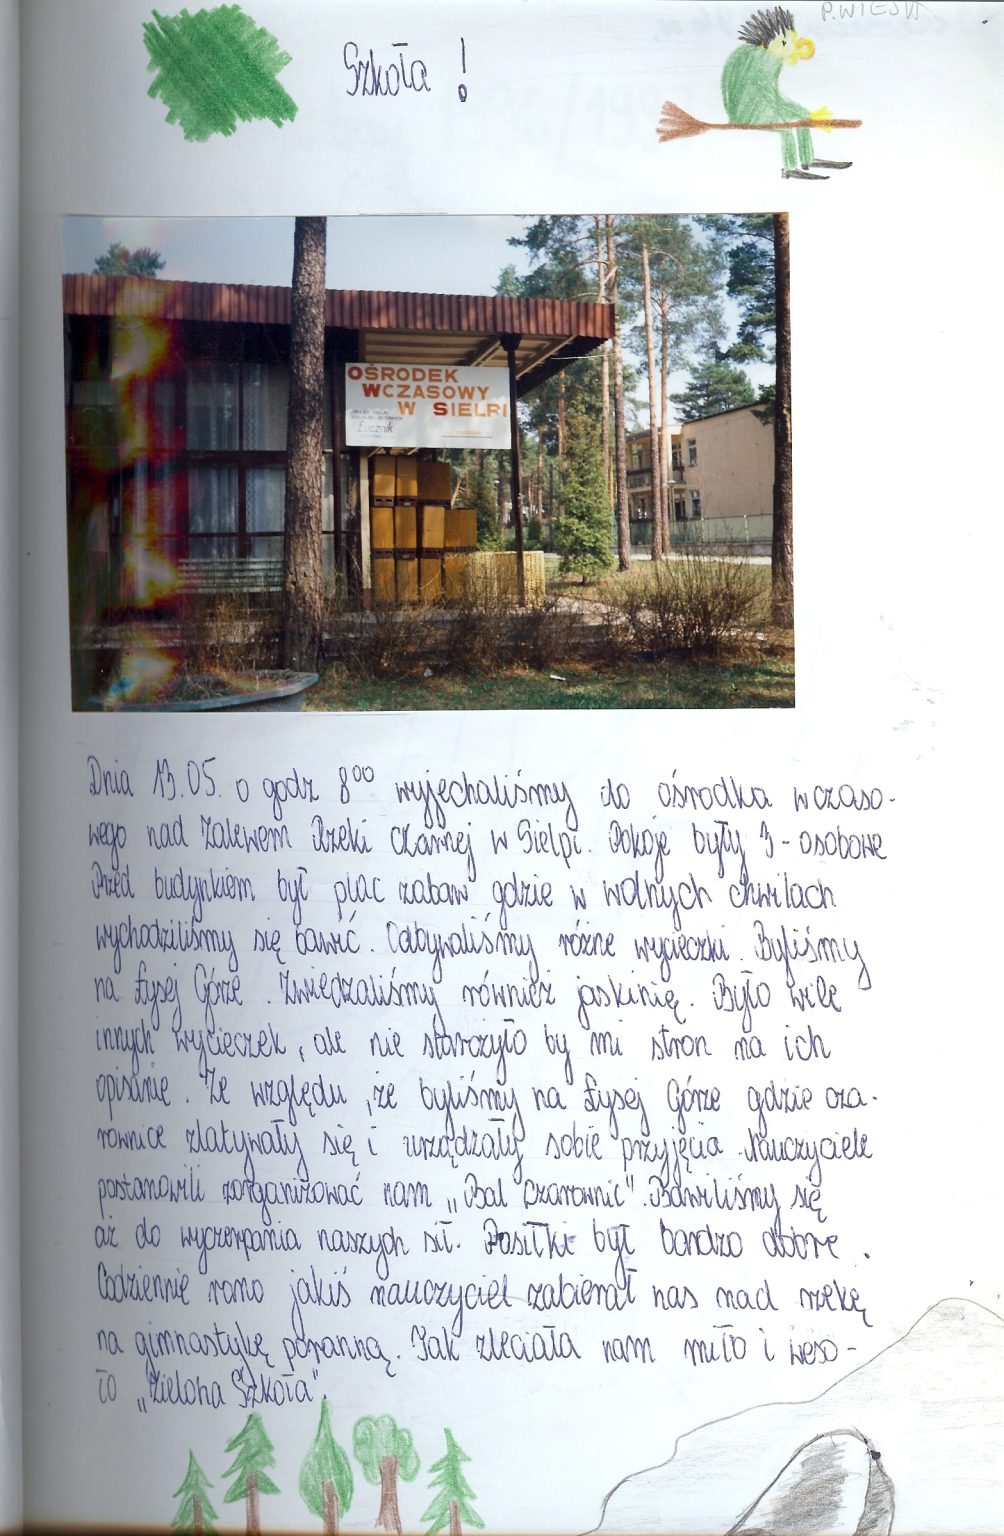 P. WIESŁA
Szkoła!
OŚRODEK
WCZASOWY
W SIELPI
Łucznik
Dnia 13.05. o godz 8⁰⁰ wyjechaliśmy do ośrodka wczaso-
wego nad Zalewem Rzeki Czarnej w Sielpi. Pokoje były 3-osobowe
Przed budynkiem był plac zabaw gdzie w wolnych chwilach
wychodziliśmy się bawić. Odbywaliśmy różne wycieczki. Byliśmy
na Łysej Górze. Zwiedzaliśmy również jaskinię. Było wile
innych wycieczek, ale nie starożyło by mi stron na ich
opisanie. Ze względu, że byliśmy na Łysej Górze gdzie cza-
rownice zlatywały się i urządzały sobie przyjęcia. Nauczyciele
postanowili zorganizować nam „Bal Czarownic". Bawiliśmy się
aż do wyczerpania naszych sił. Posiłki był bardzo dobre.
Codziennie rano jakiś nauczyciel zabierał nas nad rzekę
na gimnastykę poranną. Tak zleciała nam miło i weso-
ło „Zielona Szkoła".